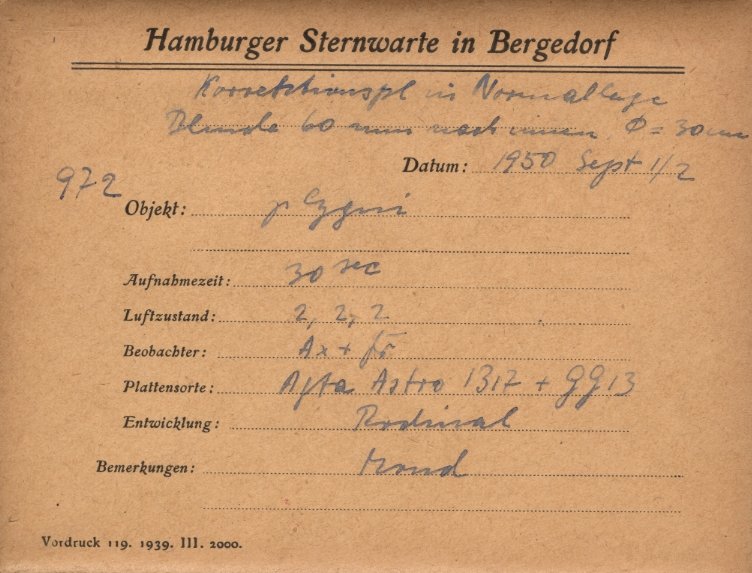 Hamburger Sternwarte in Bergedorf
Korrektionspl in Normallage
Blende 60 mm nach innen. Φ = 30cm
Datum: 1950 Sept 1/2
972
Objekt: Cygni
Aufnahmezeit: 30 sec
Luftzustand: 2, 2, 2
Beobachter: Ax +
Plattensorte: Agfa Astro 1317 + GG13
Entwicklung: Rodinal
Bemerkungen: Mond
Vordruck 119. 1939. III. 2000.